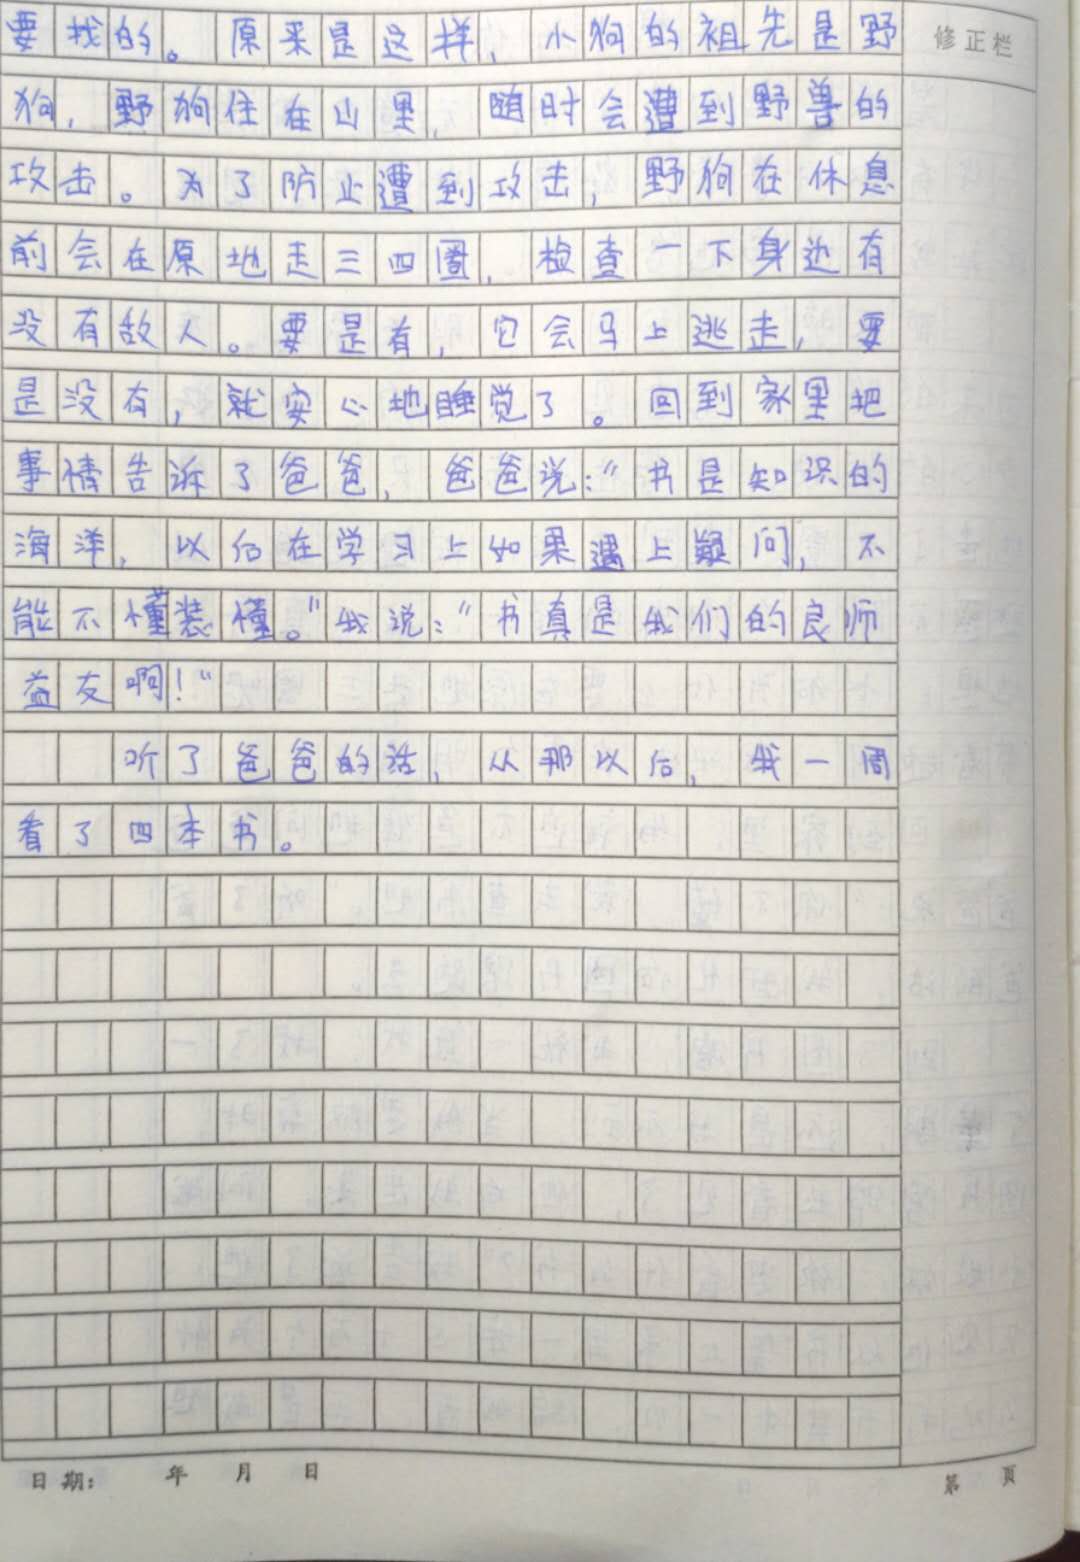 要找的。原来是这样，小狗的祖先是野
修正栏
狗，野狗住在山里，随时会遭到野兽的
攻击。为了防止遭到攻击，野狗在休息
前会在原地走三四圈，检查一下身边有
没有敌人。要是有，它会马上逃走，要
是没有，就安心地睡觉了。回到家里把
事情告诉了爸爸，爸爸说：“书是知识的
海洋，以后在学习上如果遇上疑问，不
能不懂装懂。”我说：“书真是我们的良师
益友啊！”
听了爸爸的话，从那以后，我一周
看了四本书。
日期： 年 月 日
第 页